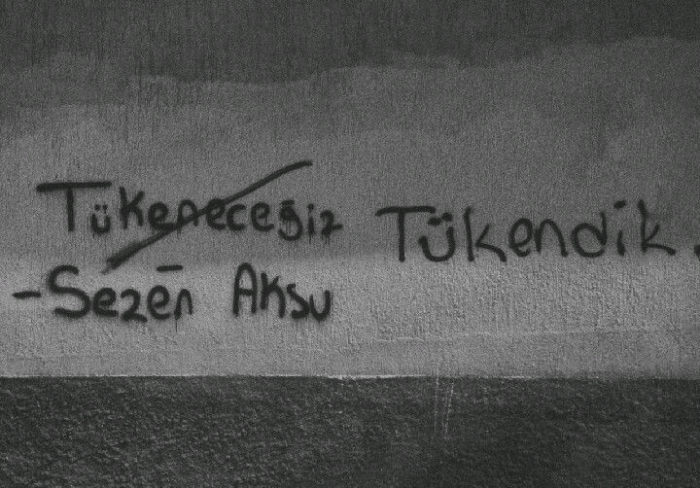 Tükeneceğiz Tükendik.
-Sezen Aksu